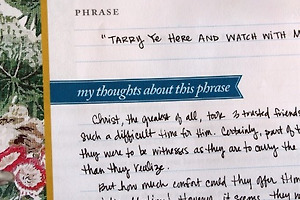 PHRASE
"TARRY YE HERE AND WATCH WITH M
my thoughts about this phrase
Christ, the greatest of all, took 3 trusted friends
such a difficult time for Him. Certainly, part of t
they were to be witnesses as they are to carry the
than they realize.
But how much comfort could they offer Him
it seems, they